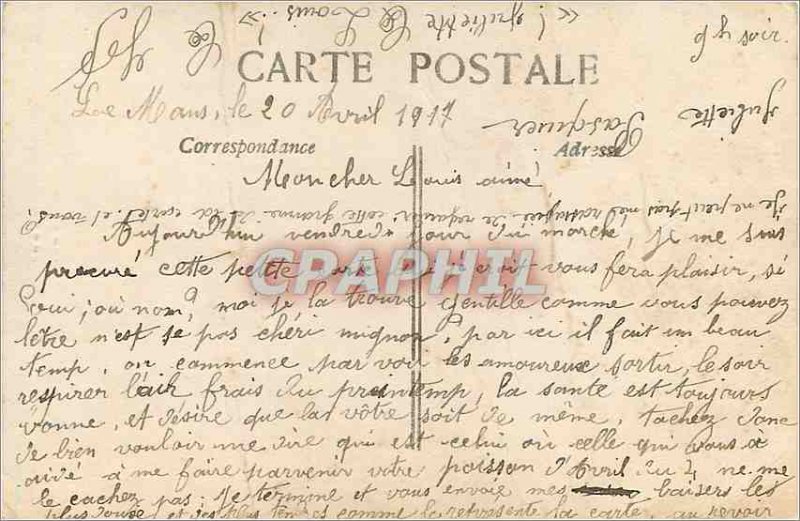 « ! Juliette & Louis. ! »
9 h soir.
CARTE POSTALE
Le Mans, le 20 Avril 1917
Juliette
Pasquier
Correspondance
Adresse
Mon cher Louis aimé,
Je ne peut pas me de regarder cette gramme de la carte. et vous?
Aujourd'hui vendredi jour du marché, je me suis
procuré cette petite carte qui je croit vous fera plaisir, si
oui; ou nom? moi je la trouve gentille comme vous pouvez
l'être n'est se pas chéri mignon, par ici il fait un beau
temp, on commence par voir les amoureux sortir, le soir
respirer l'air frais du printemp, la santé est toujours
bonne, et désire que la vôtre soit de même, tachez donc
de bien vouloir me dire qui est celui ou celle qui vous a
aidé à me faire parvenir votre poisson d'Avril du 1 ne me
le cachez pas. Je termine et vous envoie mes baisers les
plus doux et les plus tendres comme le représente la carte, au revoir
CRAPHIL